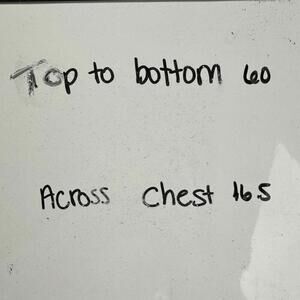 Top to bottom 60
Across chest 16.5